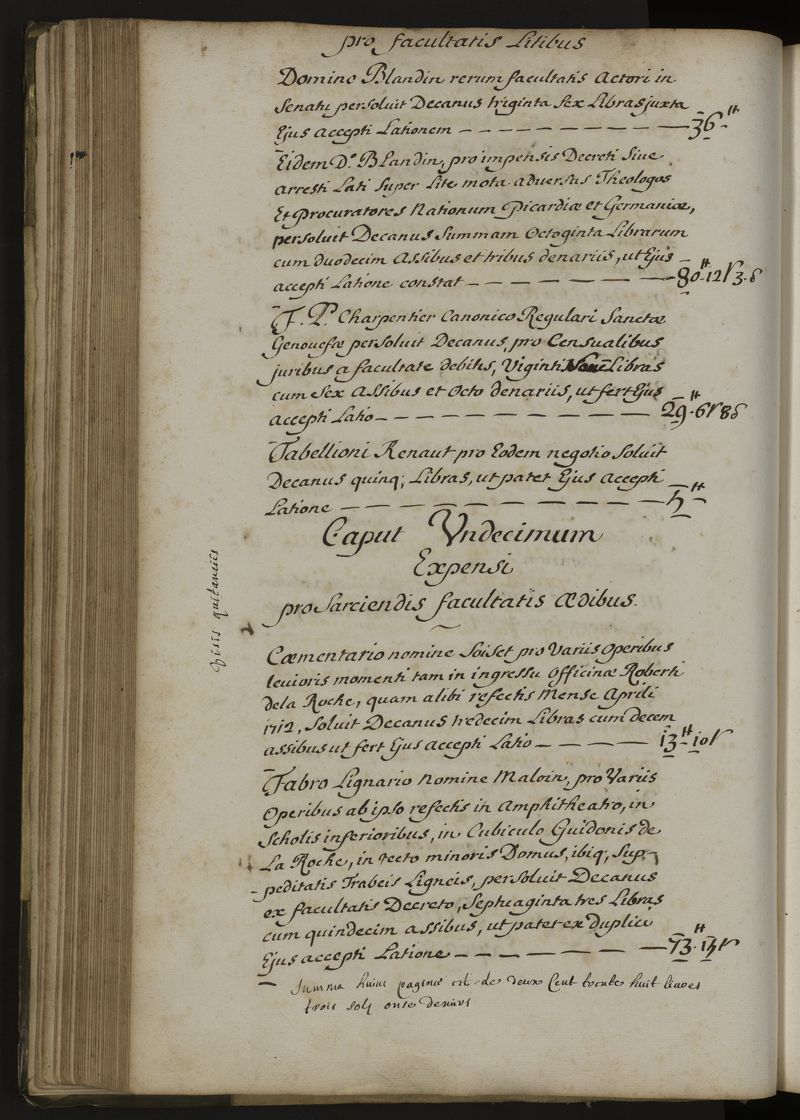 pro facultatis Litibus
Domino Blandin rerum facultatis Actori in
Senatu persoluit Decanus triginta sex Libras juxta
Ejus accepti Lationem — 36 ₶
Eidem D.º Blandin, pro impensis Decreti sive
arresti Lati super Lite mota adversus Theologos
Et procuratores Nationum Picardiæ et Germaniæ,
persoluit Decanus Summam Octoginta Librarum
cum duodecim Assibus et tribus denariis, ut Ejus
accepti Latione constat — 80 ₶ 12 s 3. δ
F. P. Charpentier Canonico Regulari Sanctæ
Genouefæ persoluit Decanus, pro Censualibus
juribus a facultate debitis, Viginti Novem Libras
cum Sex Assibus et Octo denariis, ut fert Ejus
accepti Latio — 29 ₶ 6 s 8 δ
Tabellioni Renaut pro Eodem negotio Soluit
Decanus quinq; Libras, ut patet Ejus accepti
Latione — 5 ₶
Caput Undecimum
Expensi
pro Sarciendis facultatis Ædibus.
visis quitanciis
Cæmentario nomine Soiset pro Variis Operibus
levioris momenti tam in ingressu Officinæ Roberti
de la Roche, quam alibi refectis Mense Aprili
1712, Soluit Decanus tredecim Libras cum decem
assibus ut fert Ejus accepti Latio — 13 ₶ 10 s
Fabro Lignario Nomine Maloin, pro Variis
Operibus ab ipso refectis in Amphitheatro, in
Scholis inferioribus, in Cubiculo Guidonis de
La Roche, in tecto minoris Domus, ibiq; Sup-
-peditatis Trabeis Ligneis, persoluit Decanus
ex facultatis Decreto, Septuaginta tres Libras
cum quindecim assibus, ut patet ex duplici
Ejus accepti Latione — 73 ₶ 15 s
Summa huius paginæ est de deux Cent trente huit livres
trois sols onze deniers